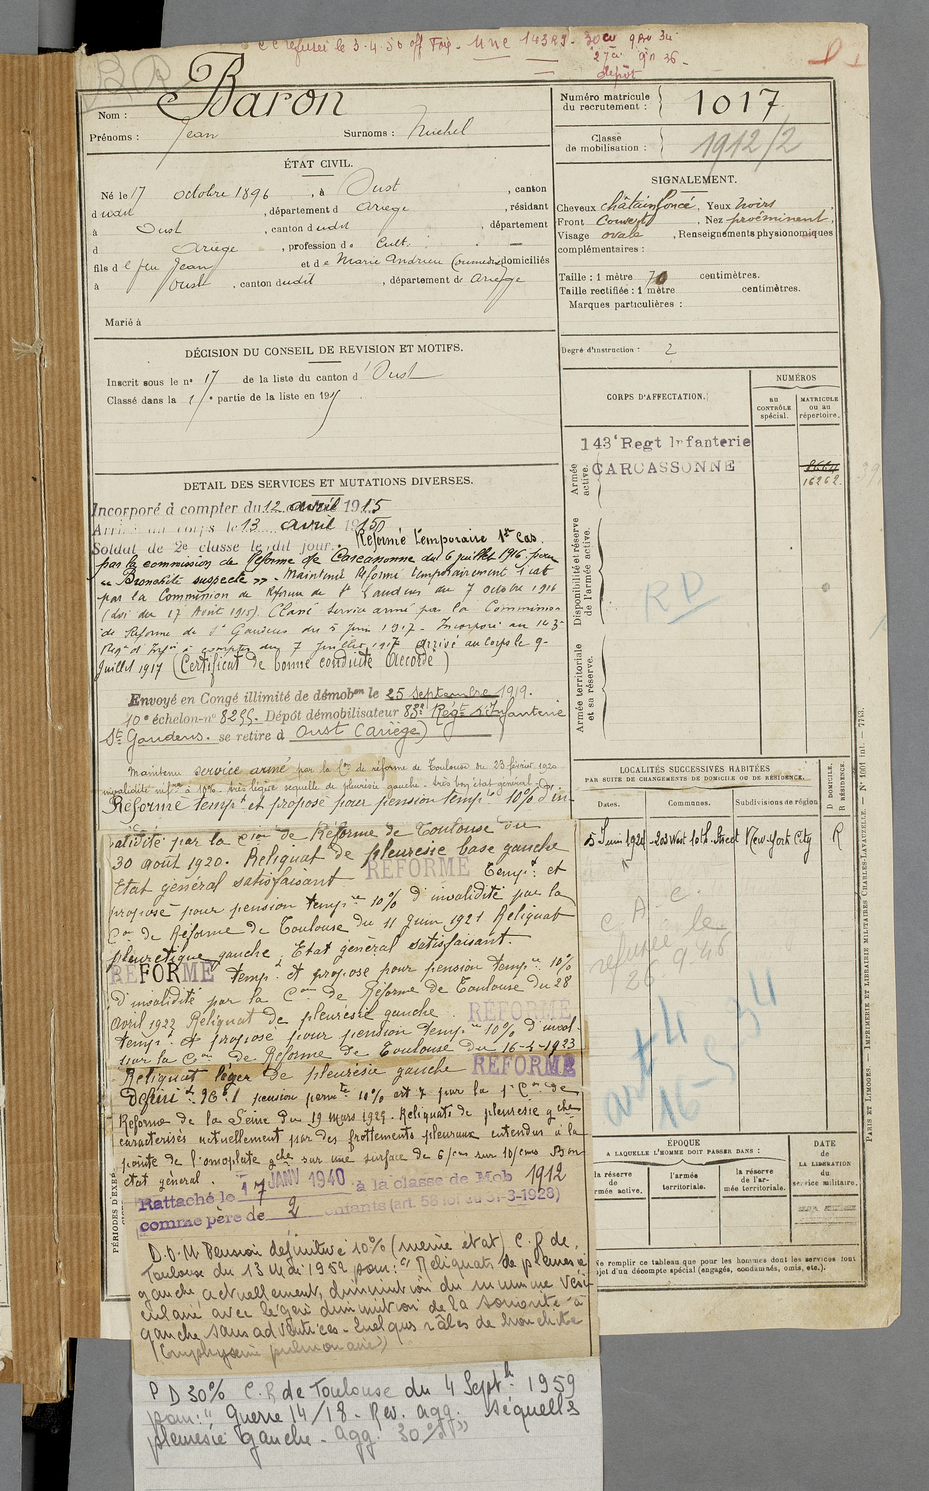 refusée le 3-4-50
Baron
Nom :
Prénoms : Jean Surnoms : Michel
Numéro matricule du recrutement : 1017
Classe de mobilisation : 1912/2
ÉTAT CIVIL.
Né le 17 octobre 1896, à Oust, canton
dudit, département d Ariège, résidant
à Oust, canton dudit, département
d Ariège, profession de Cult.
fils de feu Jean et de Marie Andrieu domiciliés
à Oust, canton dudit, département de Ariège
Marié à
SIGNALEMENT.
Cheveux châtain foncé, Yeux noirs,
Front Couvert, Nez proéminent,
Visage ovale, Renseignements physionomiques
complémentaires :
Taille : 1 mètre 70 centimètres.
Taille rectifiée : 1 mètre centimètres.
Marques particulières :
Degré d'instruction : 2
DÉCISION DU CONSEIL DE REVISION ET MOTIFS.
Inscrit sous le no 17 de la liste du canton d'Oust
Classé dans la 1re partie de la liste en 1915
CORPS D'AFFECTATION.
NUMÉROS
AU CONTRÔLE spécial.
MATRICULE ou au répertoire.
Armée active.
143e Regt Infanterie
CARCASSONNE
16262
Disponibilité et réserve de l'armée active.
RD
Armée territoriale et sa réserve.
DETAIL DES SERVICES ET MUTATIONS DIVERSES.
Incorporé à compter du 12 avril 1915
Arrivé au corps le 13 avril 1915
Soldat de 2e classe le dit jour. Réformé temporaire 1er Cas.
par la commission de Réforme de Carcassonne du 6 juillet 1916 pour
"Bronchite suspecte". Maintenu Réformé temporairement 1 cat
par la Commission de Réforme de St Gaudens du 7 octobre 1916
(Loi du 17 Août 1915) Classé service armé par la Commission
de Réforme de St Gaudens du 5 juin 1917. Incorporé au 143
Regt d'Infie à compter du 7 Juillet 1917 arrivé au corps le 9
Juillet 1917 (Certificat de bonne conduite Accordé)
Envoyé en Congé illimité de démobon le 25 septembre 1919.
10e échelon-no 8255. Dépôt démobilisateur 83e Régt d'Infanterie
St Gaudens. se retire à Oust (Ariège)
Maintenu service armé par la Con de réforme de Toulouse du 23 février 1920
invalidité infre à 10% très légère séquelle de pleurésie gauche. très bon état général
Réformé tempt et proposé pour pension tempre 10% d'in-
validité par la Cion de Réforme de Toulouse du
30 août 1920. Reliquat de pleurésie base gauche
Etat général satisfaisant REFORMÉ tempt et
proposé pour pension tempre 10% d'invalidité par la
Con de Réforme de Toulouse du 11 Juin 1921 Reliquat
pleurétique gauche, Etat général satisfaisant.
REFORMÉ tempt et proposé pour pension tempre 10%
d'invalidité par la Con de Réforme de Toulouse du 28
Avril 1922 Reliquat de pleurésie gauche. REFORMÉ
tempt et proposé pour pension tempre 10% d'inval.
par la Con de Réforme de Toulouse du 16-4-1923
Reliquat léger de pleurésie gauche REFORMÉ
Définit pension permte 10% art 7 par la 1e Con de
Réforme de la Seine du 19 mars 1925. Reliquats de pleurésie gche
caractérisés actuellement par des frottements pleuraux entendus à la
pointe de l'omoplate gche sur une surface de 6/cms sur 10/cms Bon
état général.
Rattaché le 17 JANV 1940 à la classe de Mob 1912
comme père de 2 enfants (art. 58 loi du 31-3-1928)
D.O.M Pension définitive 10% (même état) C.R de
Toulouse du 13 Mai 1952 pour: "Reliquats de pleurésie
gauche actuellement, diminution du murmure vési-
culaire avec légère diminution de la sonorité à
gauche sans adventices. Quelques râles de bronchite
(Emphysème pulmonaire)
P D 30% C.R de Toulouse du 4 Septb 1959
pour: "Guerre 14/18 - Rev. agg. séquelles
pleurésie gauche - agg. 30%"
LOCALITÉS SUCCESSIVES HABITÉES
PAR SUITE DE CHANGEMENTS DE DOMICILE OU DE RÉSIDENCE.
Dates. Communes. Subdivisions de région
D DOMICILE. R RÉSIDENCE.
5 Juin 1924 203 West 10th Street New-York City R
C.A.C.
refusée le
26 9.46
art 4
16-5-34
ÉPOQUE
A LAQUELLE L'HOMME DOIT PASSER DANS :
la réserve de l'armée active.
l'armée territoriale.
la réserve de l'armée territoriale.
DATE DE LA LIBÉRATION du service militaire.
Ne remplir ce tableau que pour les hommes dont les services font
objet d'un décompte spécial (engagés, condamnés, omis, etc.).
PÉRIODES D'EXER
PARIS ET LIMOGES. — IMPRIMERIE ET LIBRAIRIE MILITAIRES CHARLES-LAVAUZELLE. — No 1061 int. — 7743.